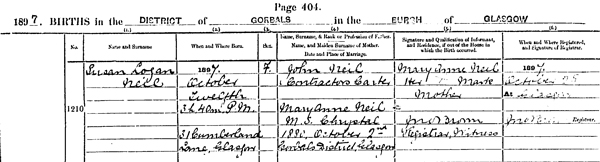 Page 404.
1897. BIRTHS in the DISTRICT of GORBALS in the BURGH of GLASGOW
No.
Name and Surname
When and Where Born.
Sex.
Name, Surname, & Rank or Profession of Father.
Name, and Maiden Surname of Mother.
Date and Place of Marriage.
Signature and Qualification of Informant,
and Residence, if out of the House in
which the Birth occurred.
When and Where Registered,
and Signature of Registrar.
1210
Susan Logan
Neil
1897
October
Twelfth
3h. 40m. P.M.
31 Cumberland
Lane, Glasgow
F.
John Neil
Contractors Carter
Mary Anne Neil
M.S. Chrystal
1890, October 2nd
Gorbals District, Glasgow
Mary Anne Neil
Her X Mark
Mother
Registrar, Witness
1897,
October
At Glasgow
Registrar.